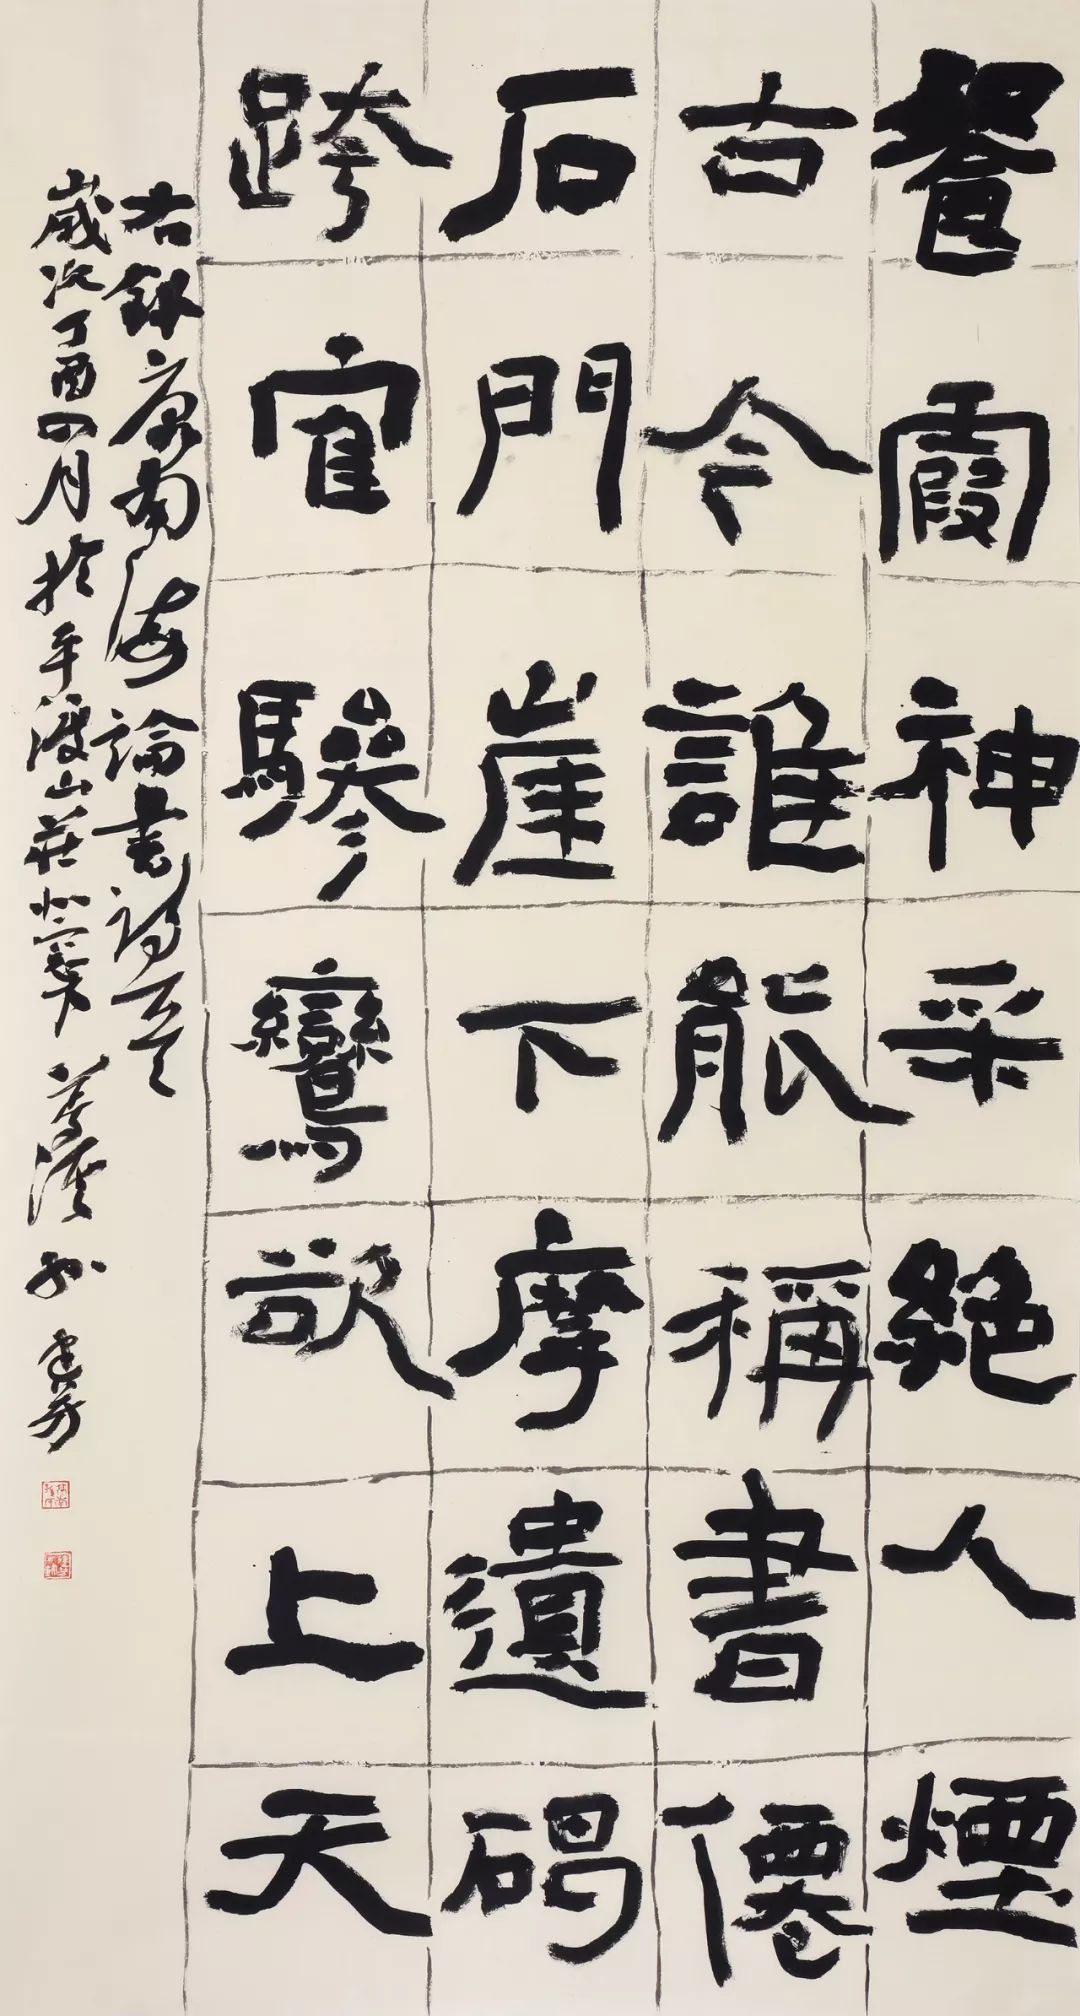 餐霞神采絕人煙
古今誰能稱書僊
石門崖下摩遺碣
跨寉驂鸞欲上天
右錄康南海論書詩
歲次丁酉四月於平渡山莊北窗下